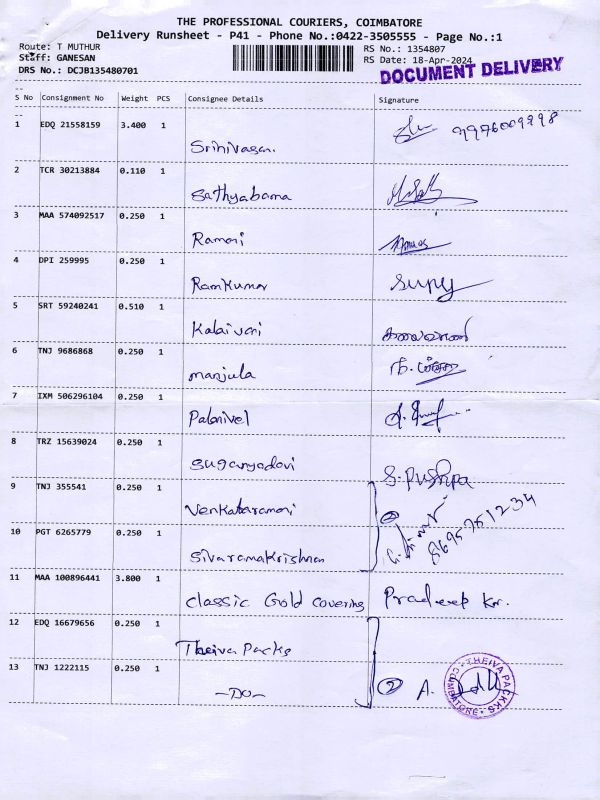 THE PROFESSIONAL COURIERS, COIMBATORE
Delivery Runsheet - P41 - Phone No.:0422-3505555 - Page No.:1
Route: T MUTHUR RS No.: 1354807
Staff: GANESAN RS Date: 18-Apr-2024
DRS No.: DCJB135480701 DOCUMENT DELIVERY
S No Consignment No Weight PCS Consignee Details Signature
1 EDQ 21558159 3.400 1 Srinivasan.
2 TCR 30213884 0.110 1 Sathyabama
3 MAA 574092517 0.250 1 Ramani
4 DPI 259995 0.250 1 Ramkumar
5 SRT 59240241 0.510 1 Kalaivani
6 TNJ 9686868 0.250 1 manjula
7 IXM 506296104 0.250 1 Palanivel
8 TRZ 15639024 0.250 1 suganyadevi S. Pushpa
9 TNJ 355541 0.250 1 Venkataramani
10 PGT 6265779 0.250 1 Sivaramakrishnan
11 MAA 100896441 3.800 1 Classic Gold covering Pradeep Kr.
12 EDQ 16679656 0.250 1 Theiva Packs
13 TNJ 1222115 0.250 1 -DO- 2 A.
THEIVA PACKS COIMBATORE